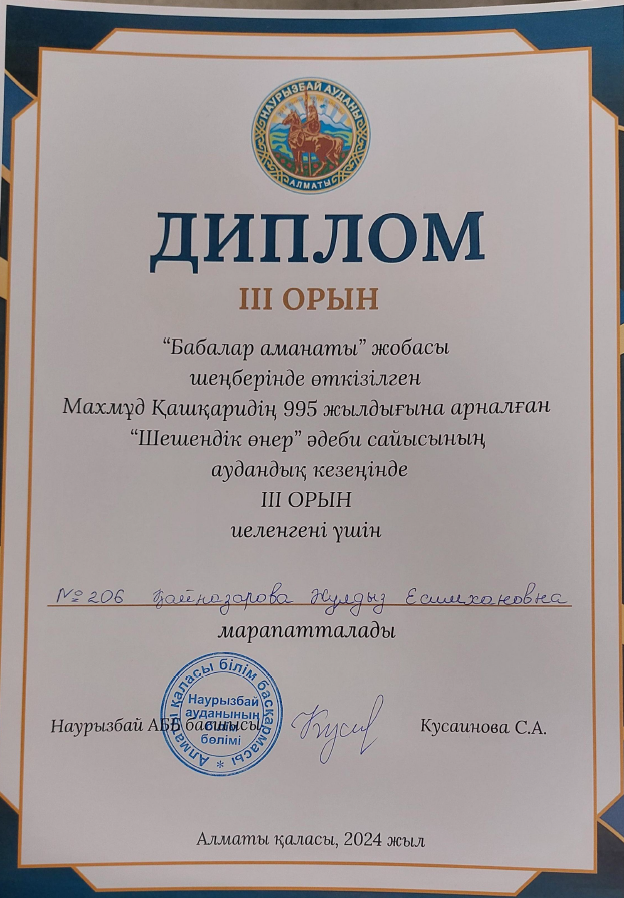 НАУРЫЗБАЙ АУДАНЫ
АЛМАТЫ
ДИПЛОМ
III ОРЫН
“Бабалар аманаты” жобасы
шеңберінде өткізілген
Махмұд Қашқаридің 995 жылдығына арналған
“Шешендік өнер” әдеби сайысының
аудандық кезеңінде
III ОРЫН
иеленгені үшін
№ 206 Қайназарова Жулдыз Есимхановна
марапатталады
Алматы қаласы білім басқармасы
Наурызбай
ауданының
білім
бөлімі
Наурызбай АББ басшысы
Кусаинова С.А.
Алматы қаласы, 2024 жыл